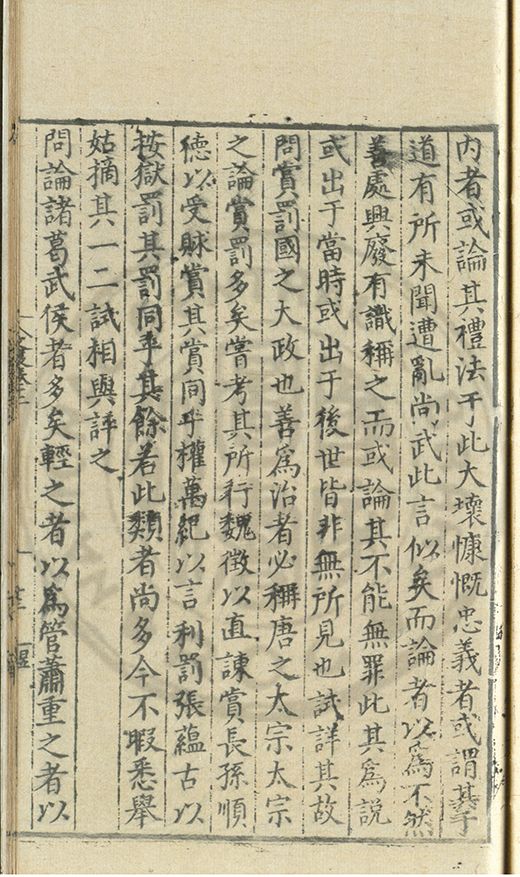 内者或論其禮法于此大壞慷慨忠義者或謂其于
道有所未聞遭亂尚武此言似矣而論者以為不然
善處興廢有識稱之而或論其不能無罪此其為說
或出于當時或出于後世皆非無所見也試詳其故
問賞罰國之大政也善為治者必稱唐之太宗太宗
之論賞罰多矣嘗考其所行魏徵以直諫賞長孫順
德以受賕賞其賞同乎權萬紀以言利罰張蘊古以
按獄罰其罰同乎其餘若此類者尚多今不暇悉舉
姑摘其一二試相與評之
問論諸葛武侯者多矣輕之者以為管蕭重之者以